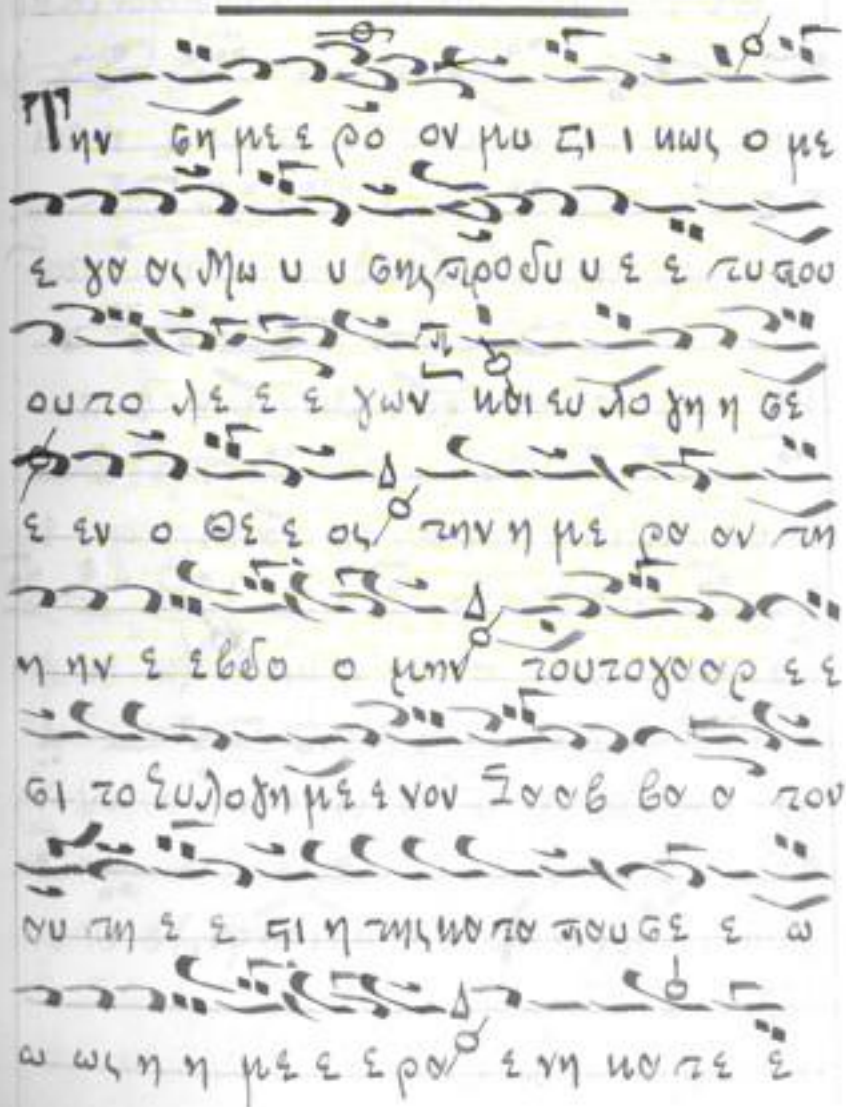 Την ση με ε ρο ον μυ στι ι κως ο με
ε γα ας Μω υ υ σης προδι υ ε ε τυ που
ου το λε ε ε γων και ευ λο γη η σε
ε εν ο Θε ε ος την η με ρα αν τη
η ην ε εβδο ο μην τουτο γα αρ ε ε
σι το Ευλογη με ε νον Σα αβ βα α τον
αυ τη ε ε στι η της κα τα παυ σε ε ω
ω ως η η με ε ε ρα ε εν η κα τε ε